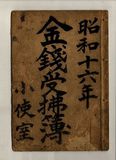 昭和十六年
金錢受拂簿
小使室